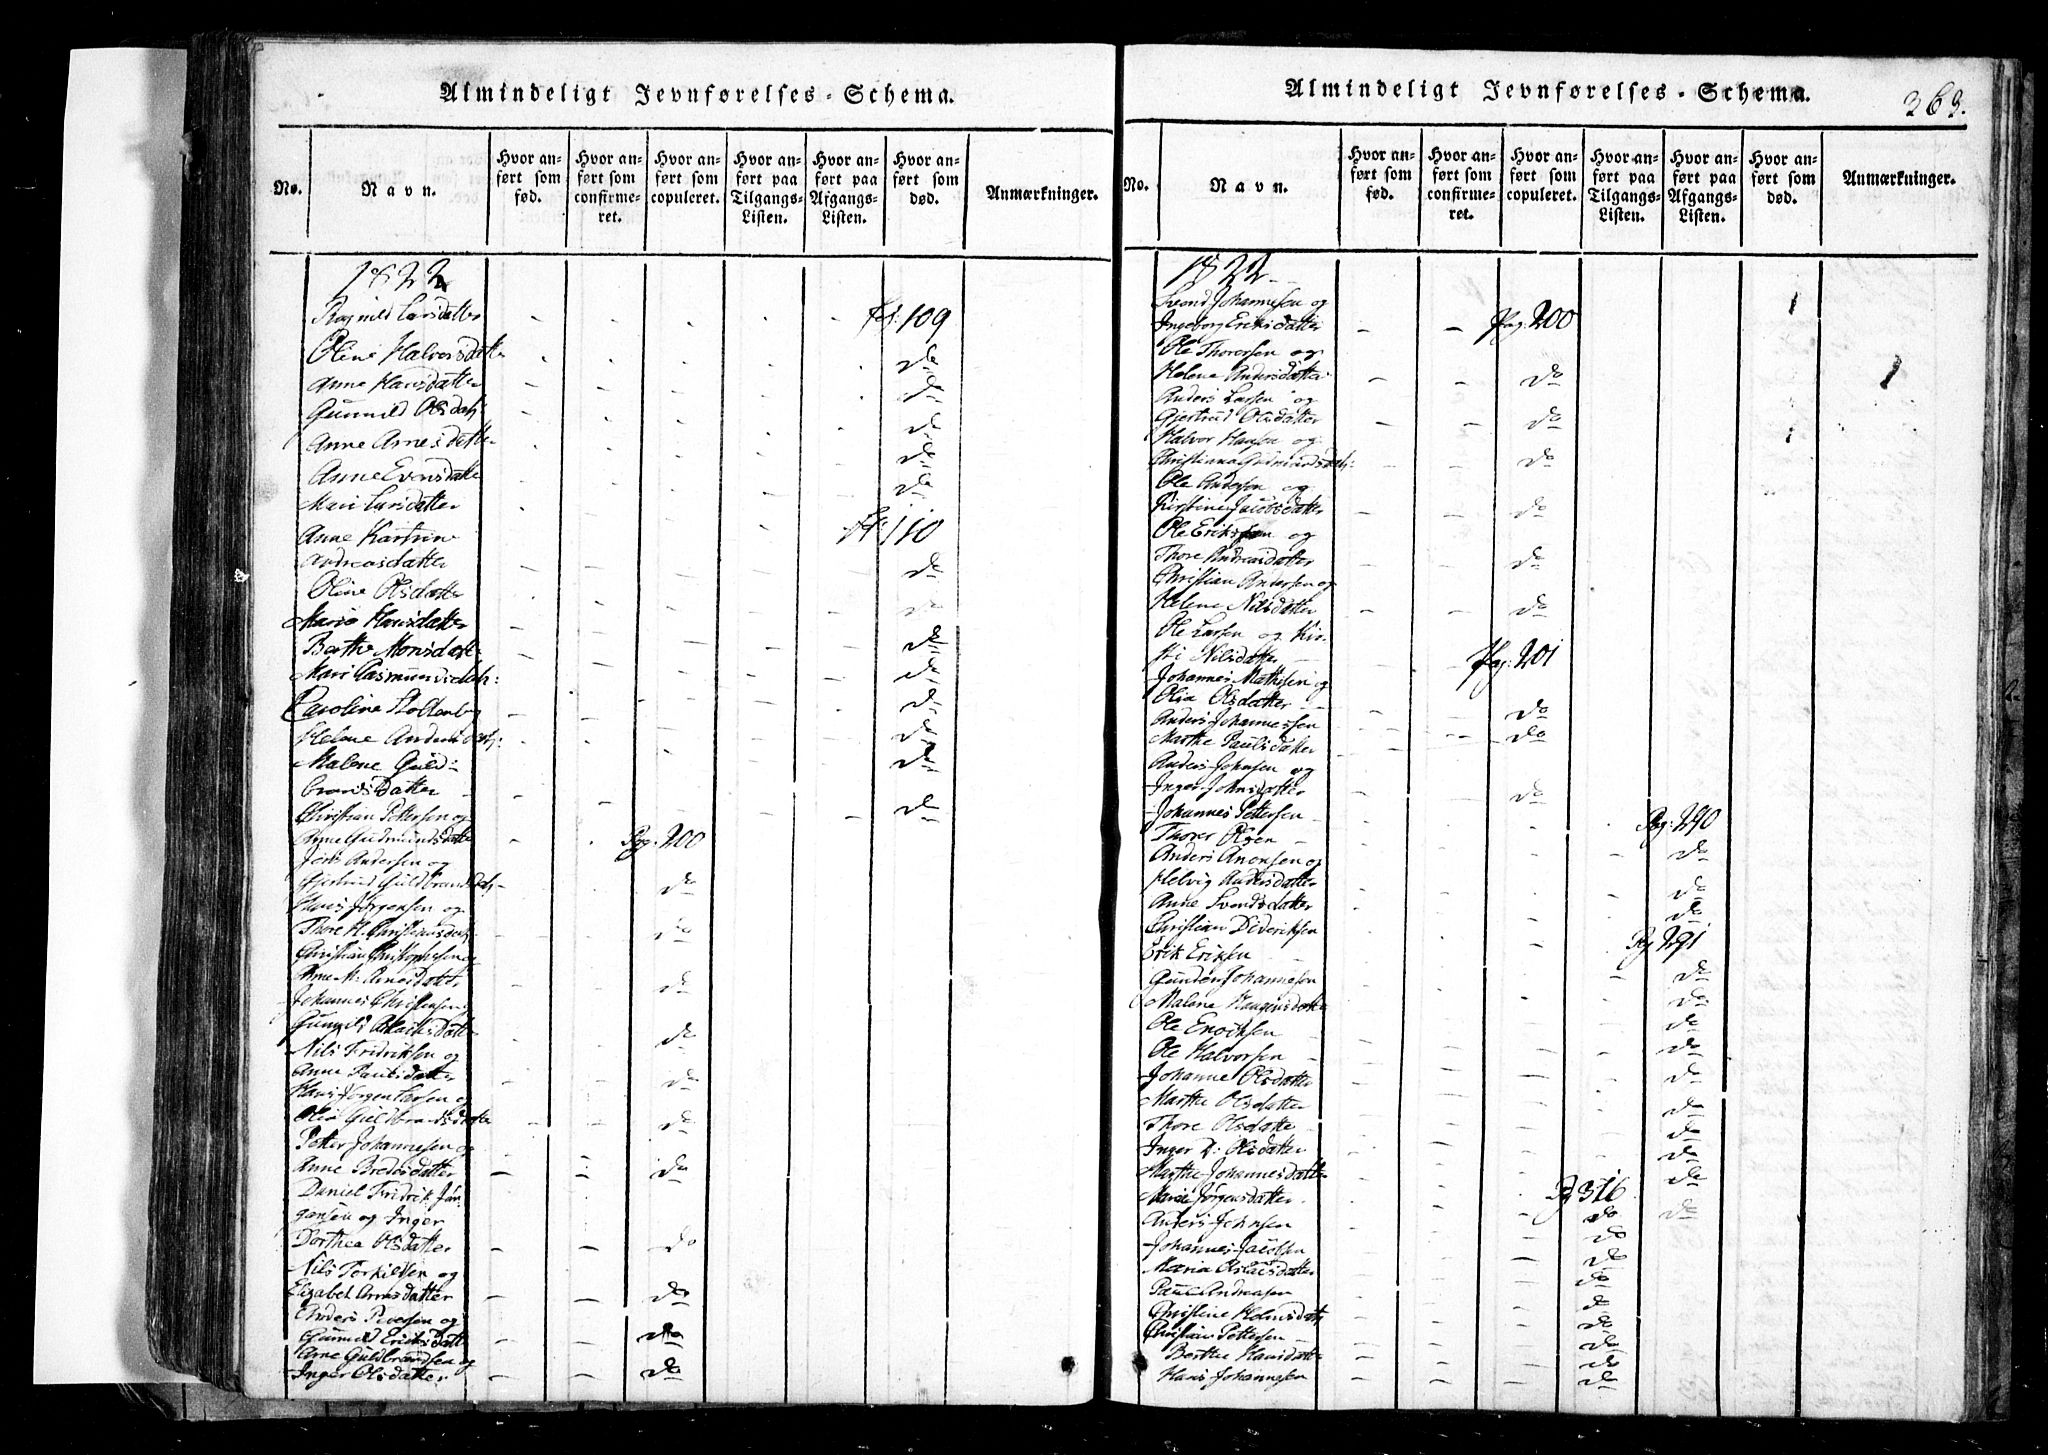 Almindeligt Jevnførelses-Schema.
No.
Navn.
Hvor anført som fød.
Hvor anført som confirmeret.
Hvor anført som copuleret.
Hvor anført paa Tilgangs-Listen.
Hvor anført paa Afgangs-Listen.
Hvor anført som død.
Anmærkninger.
1822
Ragnild Larsdatter fol: 109
Oline Halvorsdatter do
Anne Hansdatter do
Gunnild Olsdatr: do
Anne Arnesdatter do
Anne Evensdatter do
Mari Larsdatter
Anne Kartrine fol: 110
Andreasdatter do
Oline Olsdatter do
Marie Hansdatter do
Berthe Monsdatter do
Mari Rasmusdatr: do
Caroline Stoltenberg do
Helene Andersdatr: do
Malene Guld-
brandsdatter do
Christian Pettersen og
Anne Gudmundsdatter Pag: 200
Andersen og
Gjertrud Guldbrandsdatr: do
Hans Jørgensen og
Thore H. Christiansdatr: do
Christian Christophersen og
Anne M. Arnesdatter do
Johannes Christensen
Gunnild do
Nils Fridriksen og
Anne Paulsdatter do
Hans Jørgen Larsen og
Olia Guldbrandsdatter do
Petter Johannesen og
Anne Bredesdatter do
Daniel Fridrik Jør-
gensen og Inger
Dorthea Olsdatter do
Nils Torkildsen og
Elizabet Arnesdatter do
Anders Iversen og
Gunnild Eriksdatter do
Arne Guldbrandsen og
Inger Olsdatter do
Almindeligt Jevnførelses-Schema.
363.
No.
Navn.
Hvor anført som fød.
Hvor anført som confirmeret.
Hvor anført som copuleret.
Hvor anført paa Tilgangs-Listen.
Hvor anført paa Afgangs-Listen.
Hvor anført som død.
Anmærkninger.
1822
Svend Johannesen og
Ingeborg Eriksdatter Pag: 200
Ole Thorersen og
Helene Andersdatter do
Anders Larsen og
Gjertrud Olsdatter do
Halvor Hansen og
Christiana Gudmundsdatr: do
Ole Andersen og
Kirstine Jacobsdatter do
Ole Eriksen og
Thore Andreasdatter do
Christian Andersen og
Helene Nilsdatter do
Ole Larsen og Kir-
sti Nilsdatter Pag: 201
Johannes Mathisen og
Olia Olsdatter do
Anders Johannessen
Marthe Paulsdatter do
Anders Johnsen og
Inger Johnsdatter do
Johannes Pettersen Pag: 290
Thorer Olsen do
Anders Anonsen og
Helvig Andersdatter do
Anne Svendsdatter do
Christian Dideriksen Pag 291
Erik Eriksen do
Gunder Johannesen do
Malene Haagensdatter do
Ole Enoiksen do
Ole Halvorsen do
Johanne Olsdatter do
Marthe Olsdatter do
Thore Olsdatter do
Inger D: Olsdatter do
Marthe Johannesdatter do
Marie Jørgensdatter Pg 316 do
Anders Johnsen do
Johannes Jacobsen do
Maria Olsdatter do
Paul Andreasen do
Christine Holmsdatr do
Christian Pettersen do
Berthe Hansdatter do
Hans Johannesen do